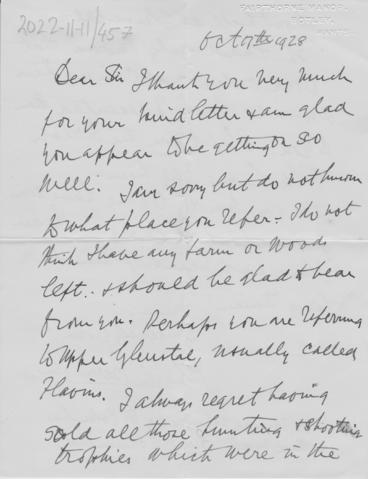 2022-11-11/457
FAIRTHORNE MANOR,
BOTLEY,
HANTS.
Oct 17th 1928
Dear Sir I thank you very much
for your kind letter & am glad
you appear to be getting on so
well. I am sorry but do not know
to what place you refer - I do not
think I have any farm or woods
left. & should be glad to hear
from you. Perhaps you are referring
to Upper Glenstal, usually called
Flavins. I always regret having
sold all those hunting & shooting
trophies which were in the